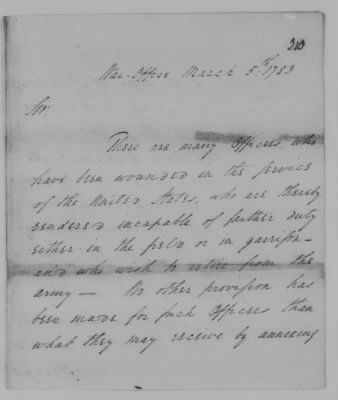 213
War-Office March 5th 1783
Sir,
There are many Officers, who
have been wounded in the service
of the United States, who are thereby
rendered incapable of farther duty
either in the field or in garrison—
and who wish to retire from the
army— No other provision has
been made for such Officers than
what they may receive by annexing